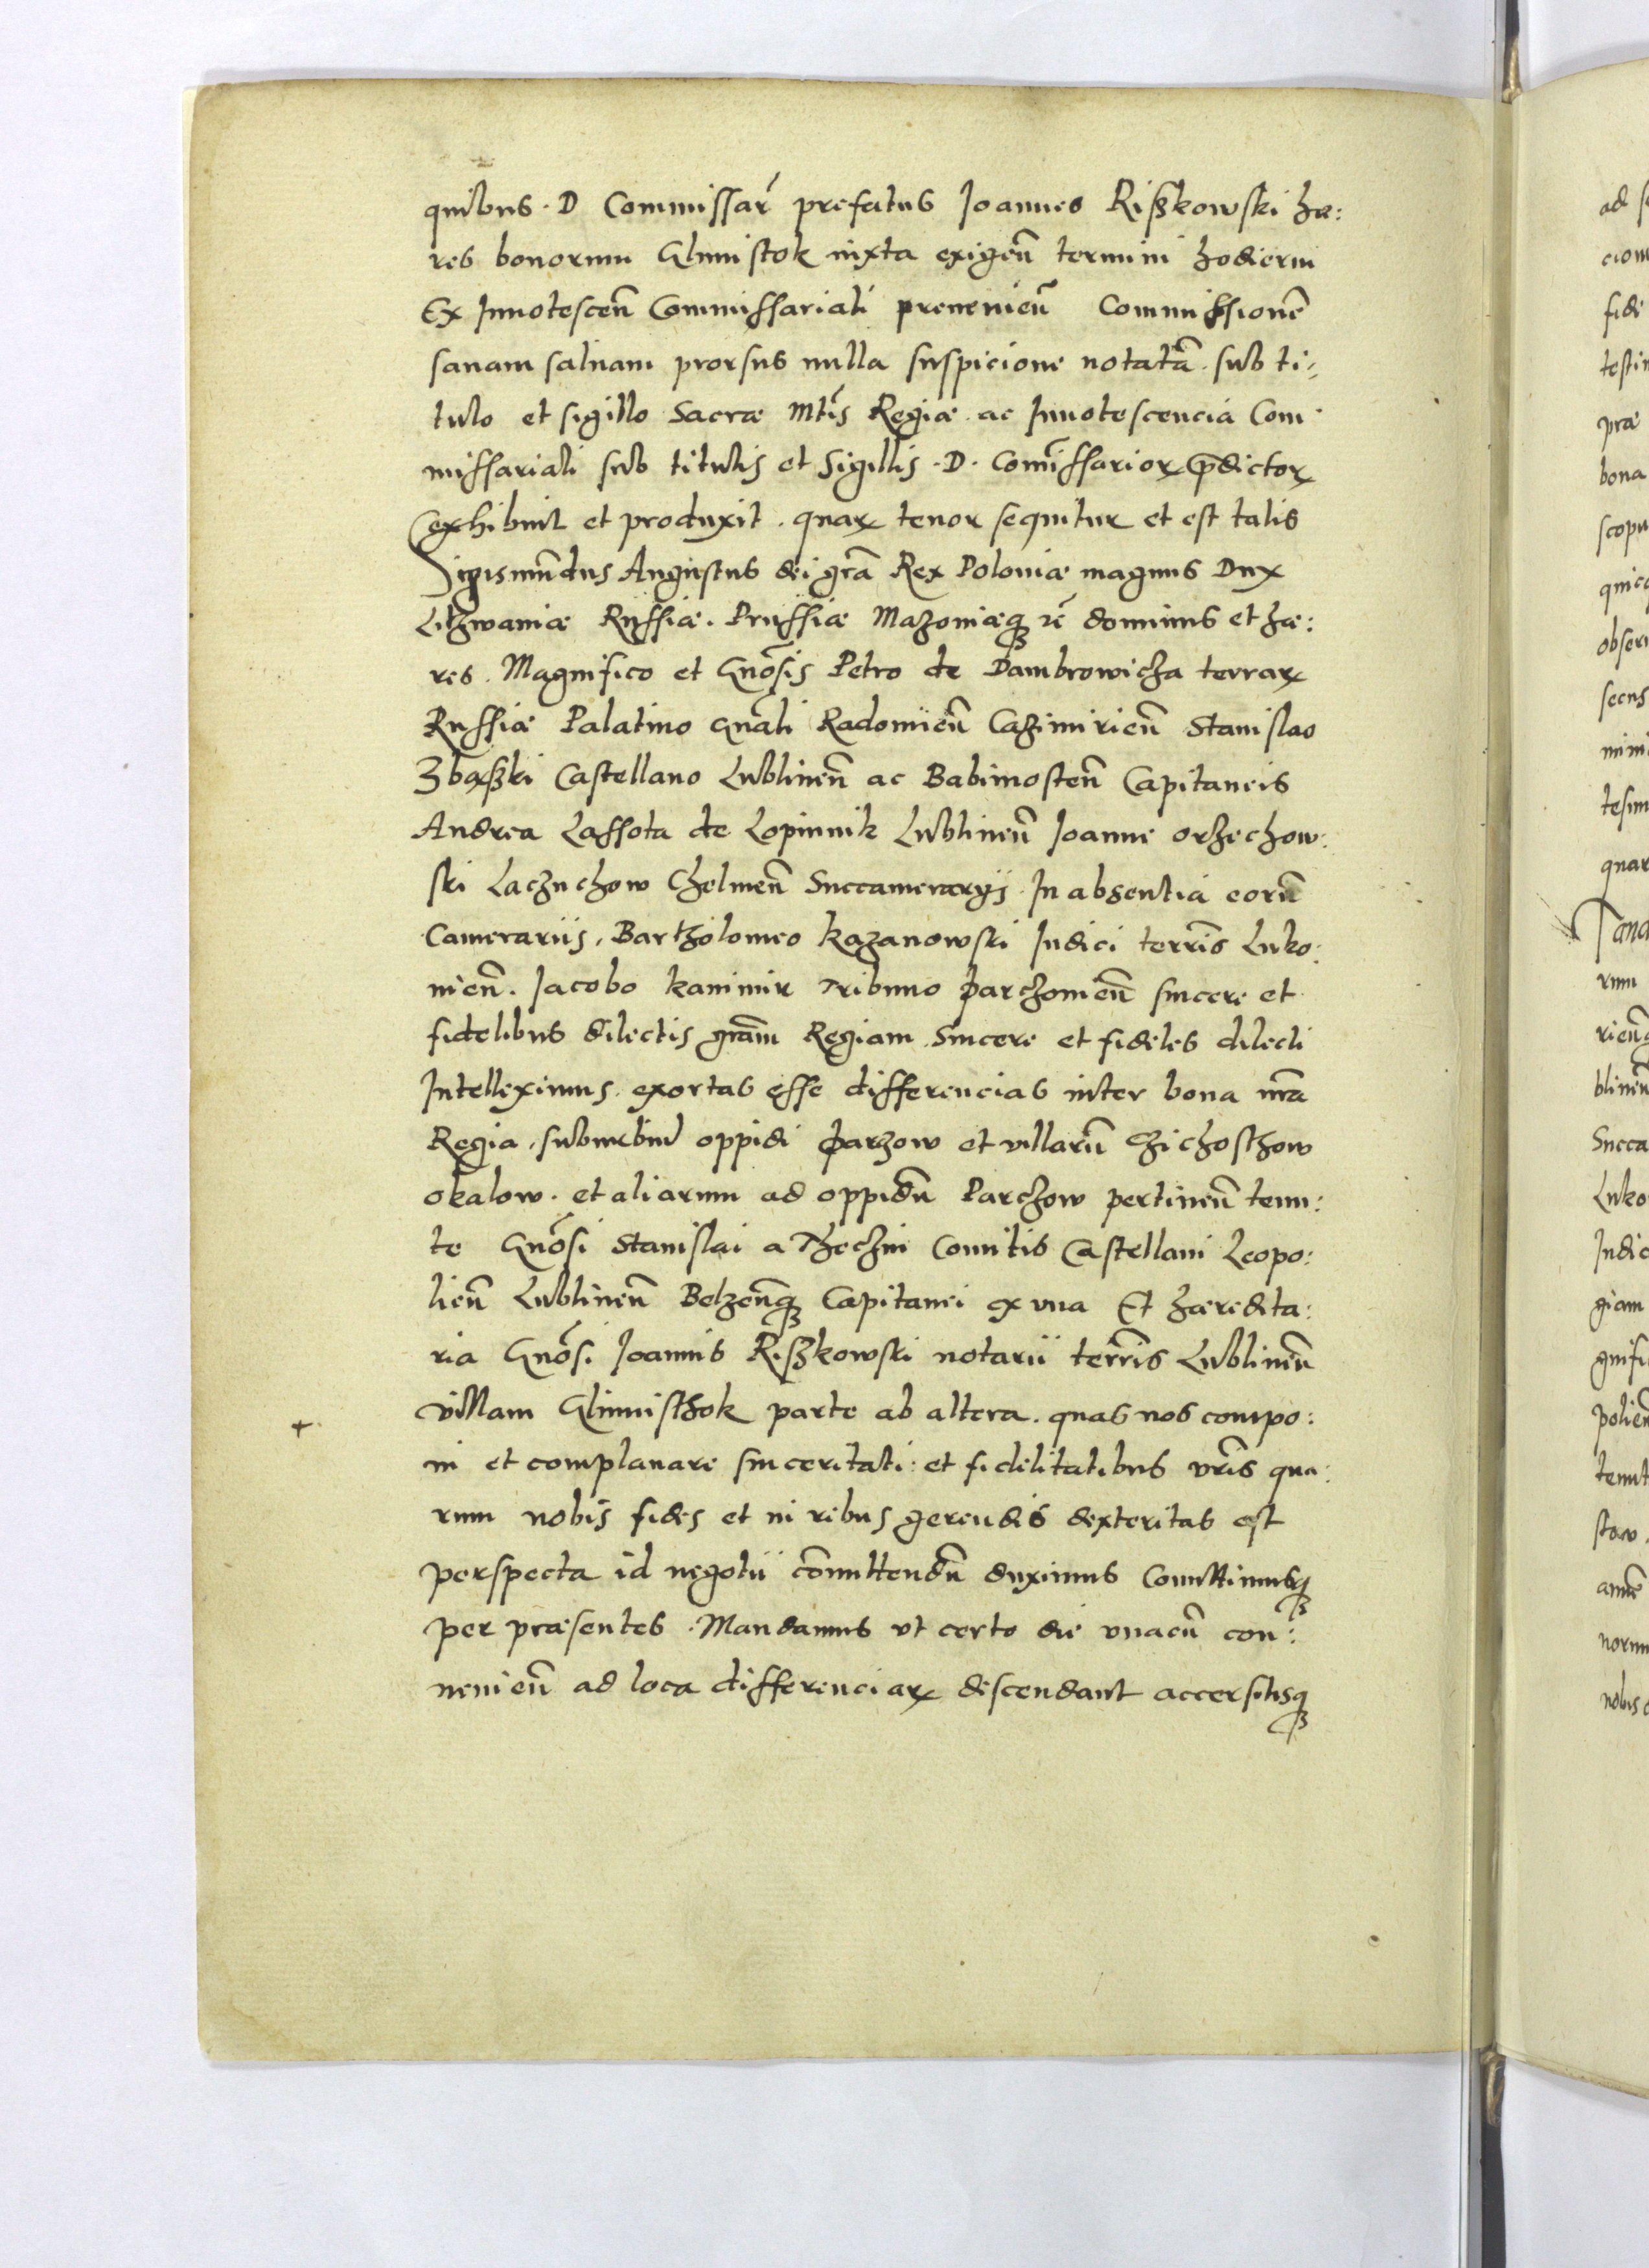 quibus . D Commissar̃ prefatus Joannes Riszkowski hæ:
res bonorum Glinnistok iuxta exigeñ termini hodierni
Ex Innotesceñ Commissariali preuenieñ Commissionẽ
sanam saluam prorsus nulla suspicione notatã . sub ti-
tulo et sigillo Sacræ Mtis̃ Regiæ . ac Innotescencia Com
missariali sub titulis et Sigillis . D . Com̃issarioꝝ p̃dictoꝝ
exhibuit et produxit . quaꝝ tenor sequitur et est talis
Sigismũdus Augustus dei grã Rex Poloniæ magnus Dux
Lithwaniæ Russiæ . Prussiæ Mazouiæqꝫ rẽ dominus et hæ:
res . Magnifico et Gnõsis Petro de Dambrowicza terraꝝ
Russiæ Palatino Gnãli Radomieñ Cazimirieñ Stanislao
Zbąszki Castellano Lublineñ ac Babimosteñ Capitaneis
Andrea Lassota de Lopinnik Lublineñ Joanne orzechow:
ski Laczuchow Chelmeñ Succamerarijs . In absentia eorũ
Camerariis , Bartholomeo kazanowski Judici terrĩs Luko:
uieñ . Jacobo kanimir Tribuno parczouieñ sincere et
fidelibus dilectis grãm Regiam . Sincere et fideles dilecti
Intelleximus . exortas esse differencias inter bona nrã
Regia , suburbiũ oppidi parzow et villarũ Chichosthow
okalow . et aliarum ad oppidũ Parchow pertineñ tenu:
te Gnõsi Stanislai a Theczin Comitis Castellani Leopo:
lieñ Lublineñ Belzeñqꝫ Capitanei ex vna Et hæredita:
ria Gnõsi Joannis Riszkowski notarii terrĩs Lublineñ
+ villam Glinnisthok parte ab altera . quas nos compo:
ni et complanare sinceritati : et fidelitatibus vrĩs qua:
rum nobis fides et in rebus gerendis dexteritas est
perspecta id negotii cõmittendũ duximus Comittimusqꝫ
per præsentes . Mandamus vt certo die vnacũ con:
uenieñ ad loca differenciaꝝ descendant accersitisqꝫ